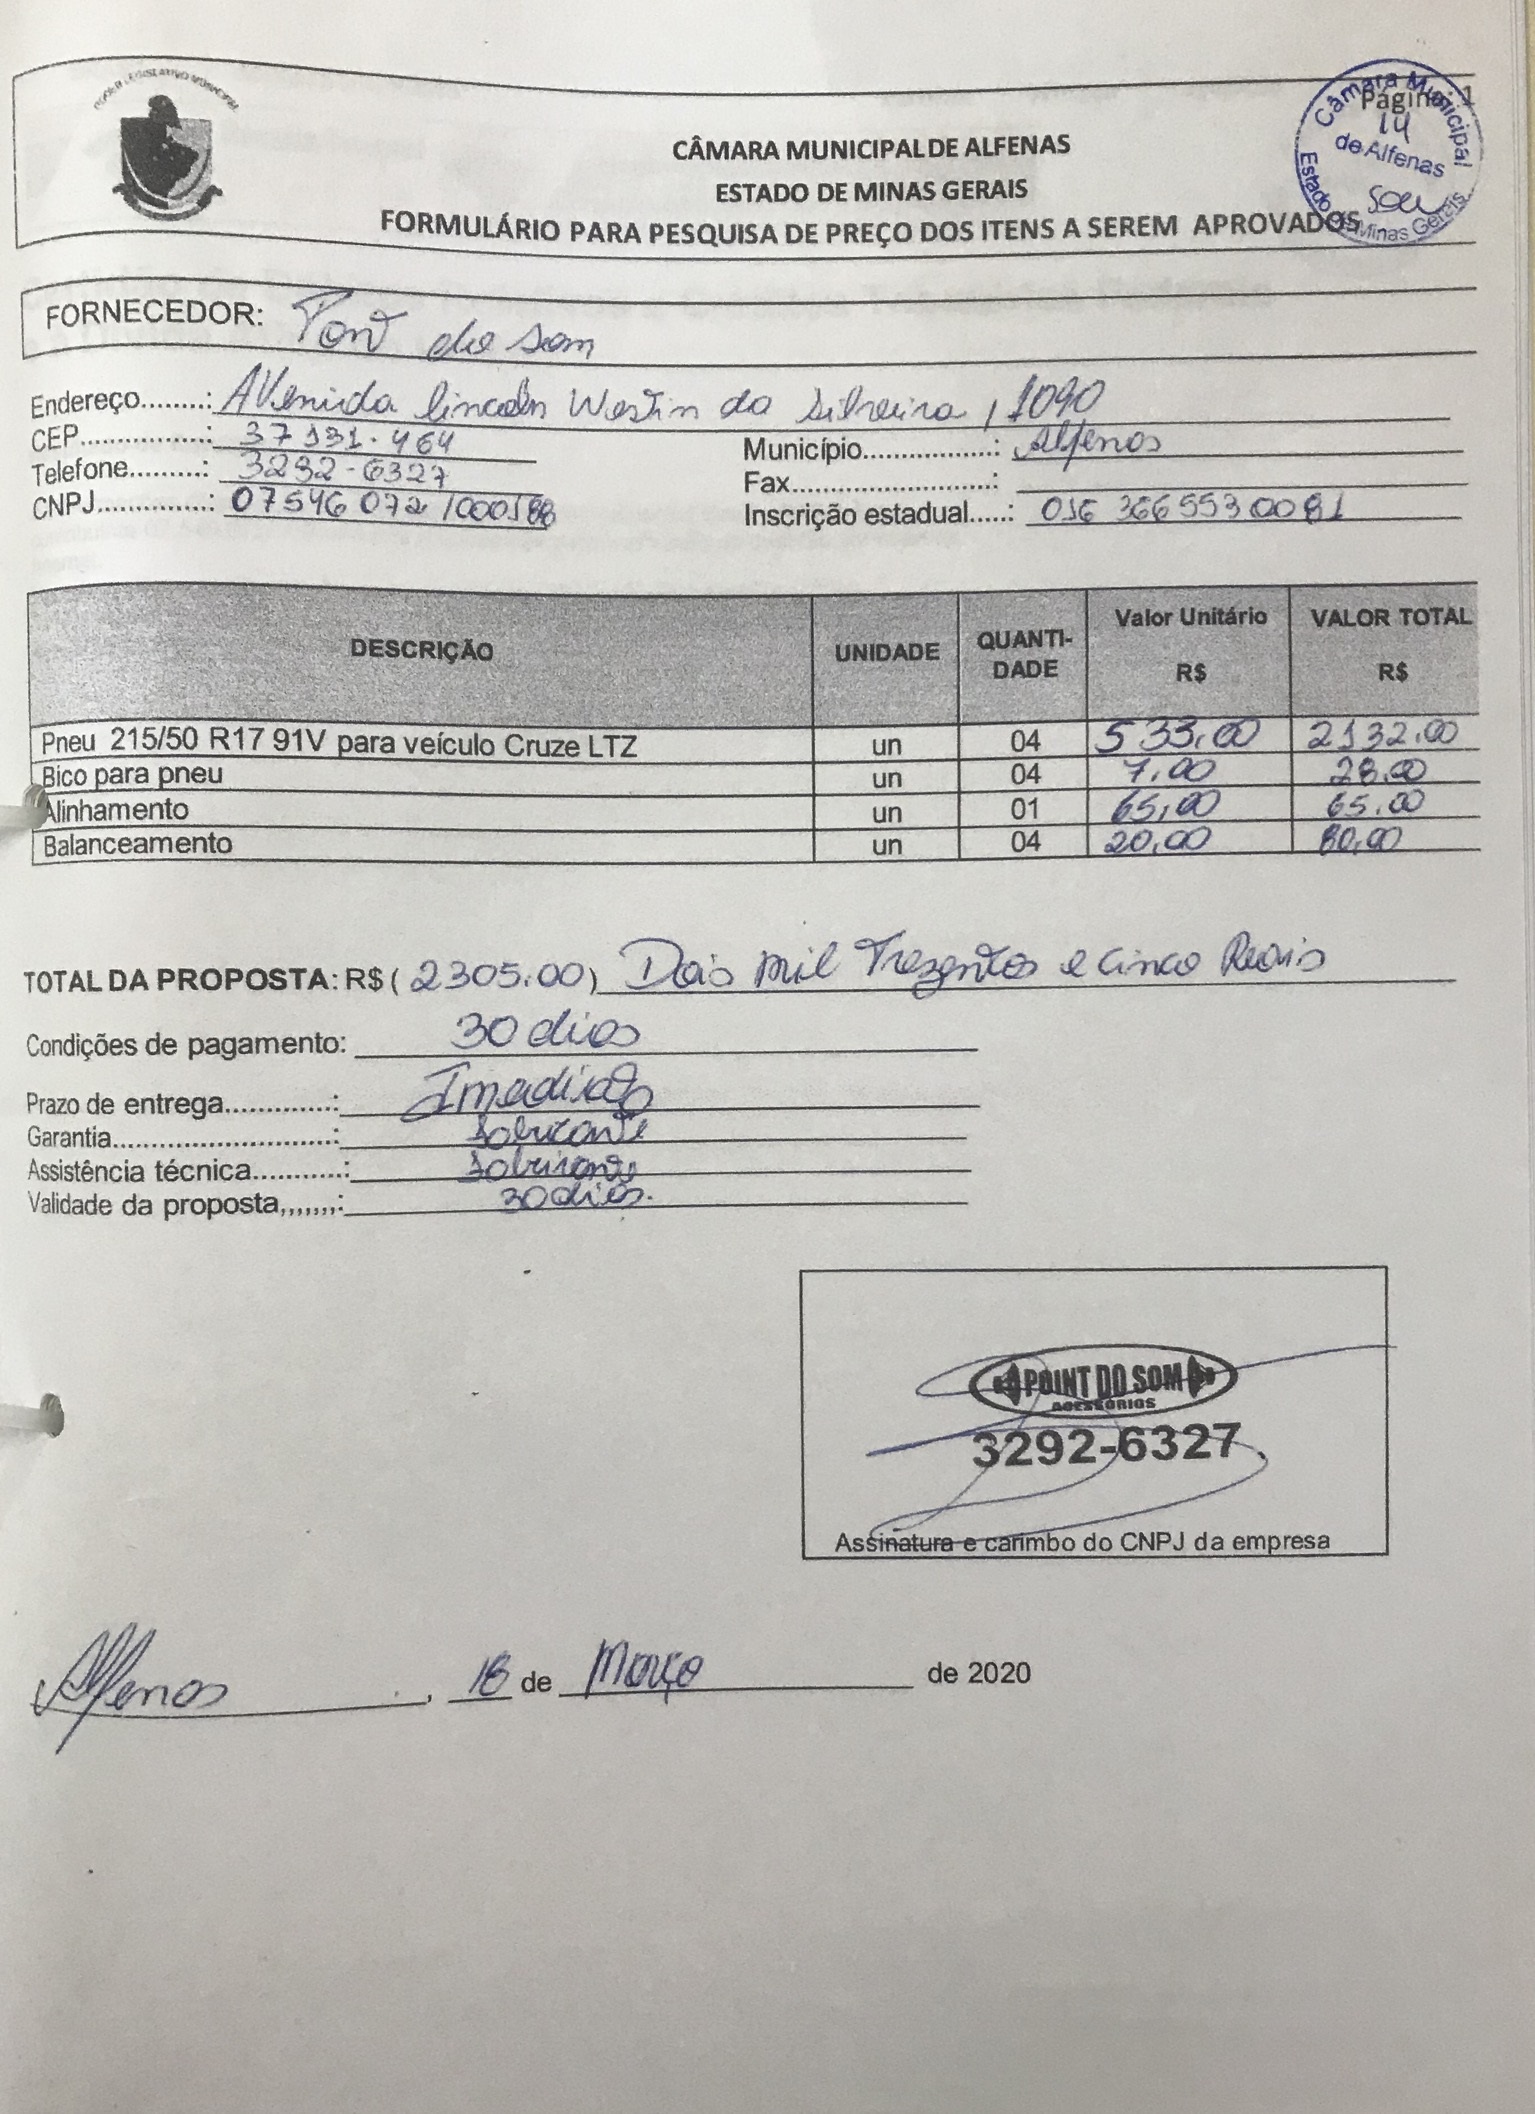 PODER LEGISLATIVO MUNICIPAL
Câmara Municipal
Página 1
14
de Alfenas
Estado de Minas Gerais
CÂMARA MUNICIPAL DE ALFENAS
ESTADO DE MINAS GERAIS
FORMULÁRIO PARA PESQUISA DE PREÇO DOS ITENS A SEREM APROVADOS
FORNECEDOR: Pont do som
Endereço........: AVenida lincoln Westin da silveira, 1090
CEP.................: 37131-464 Município.................: Alfenas
Telefone.........: 3292-6327 Fax..........................:
CNPJ...............: 07546072/000188 Inscrição estadual.....: 016 366553 0081
DESCRIÇÃO UNIDADE QUANTI-DADE Valor Unitário R$ VALOR TOTAL R$
Pneu 215/50 R17 91V para veículo Cruze LTZ un 04 533,00 2132.00
Bico para pneu un 04 7,00 28,00
Alinhamento un 01 65,00 65.00
Balanceamento un 04 20,00 80,00
TOTAL DA PROPOSTA: R$ ( 2305.00) Dois mil Trezentos e cinco Reais
Condições de pagamento: 30 dias
Prazo de entrega.............:
Garantia.............................: fabricante
Assistência técnica............: fabricante
Validade da proposta,,,,,,,: 30 dias.
POINT DO SOM
ACESSÓRIOS
3292-6327
Assinatura e carimbo do CNPJ da empresa
Alfenas, 18 de Março de 2020